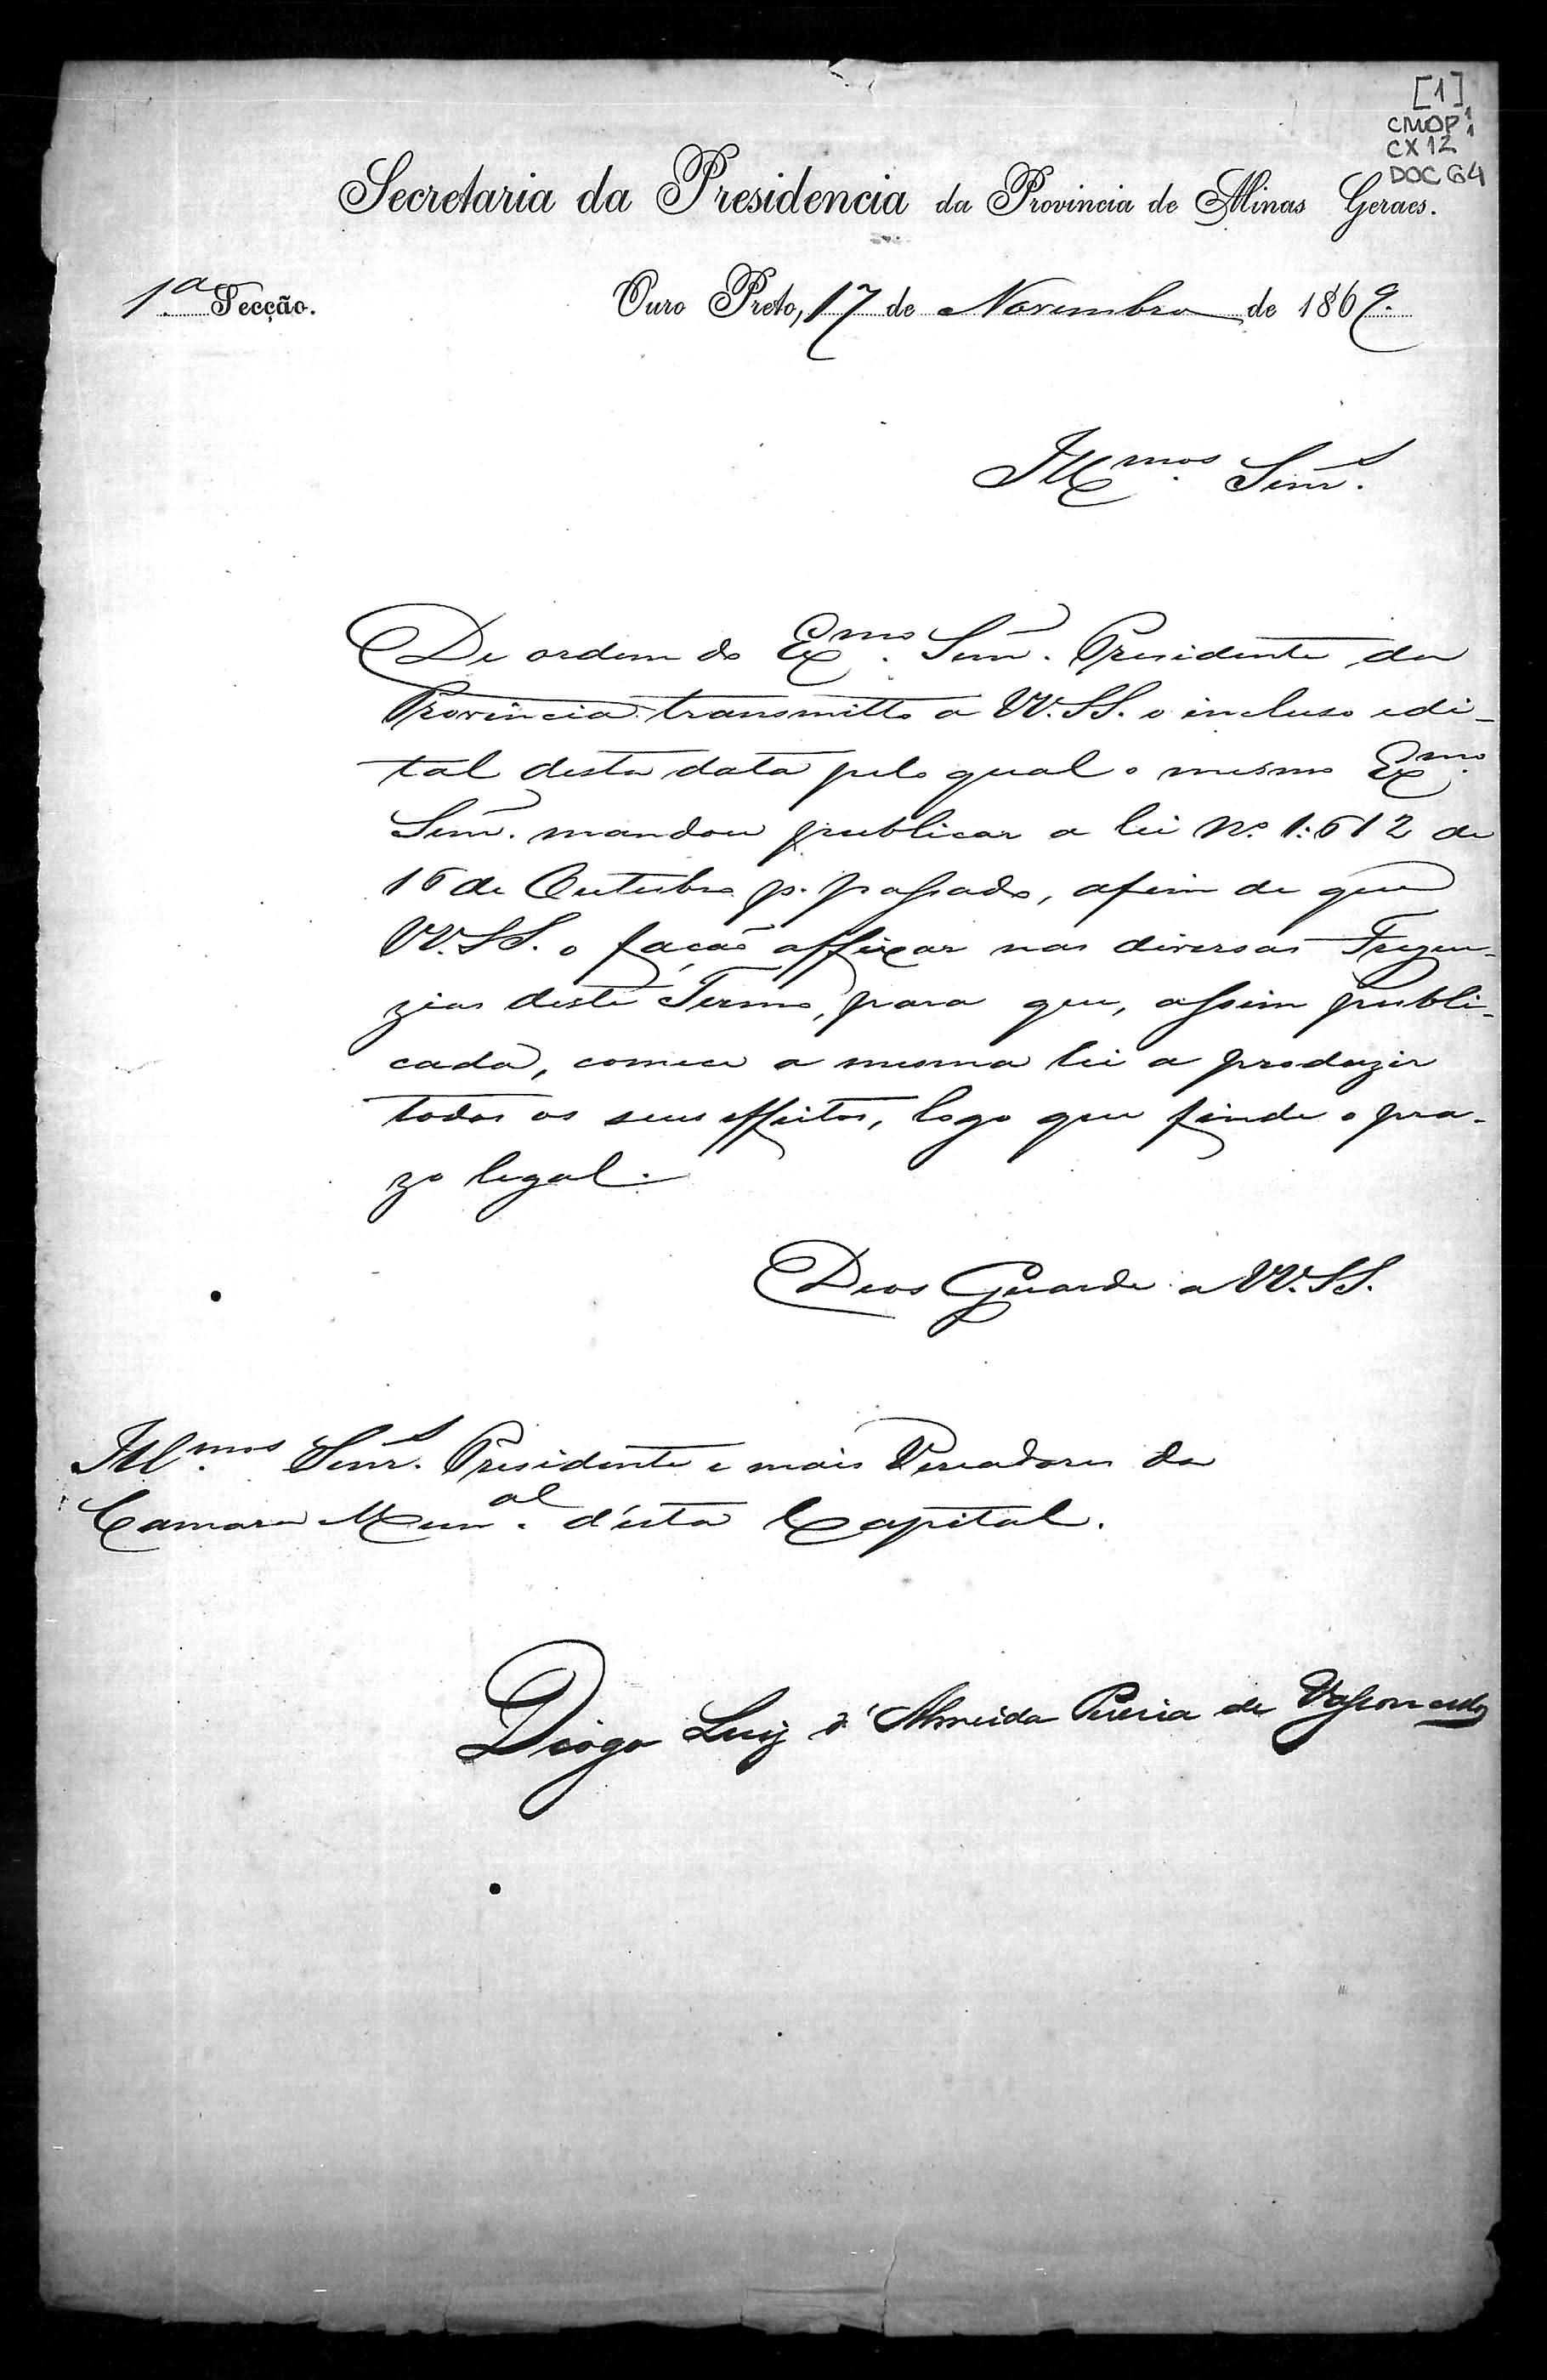 [1]
CMOP 1
CX 12
DOC 64
Secretaria da Presidencia da Provincia de Minas Geraes.
1.ª Secção. Ouro Preto, 17 de Novembro de 1869.
Illmos. Senrs.
De ordem do Exmo. Senr. Presidente da
Provincia transmitto a VV.SS. o incluso edi-
tal desta data pelo qual o mesmo Exmo.
Senr. mandou publicar a lei Nº 1:612 de
16 de Outubro p. passado, afim de que
VV.SS. o fação affixar nas diversas Fregue-
zias deste Termo, para que, assim publi-
cada, comece a mesma lei a produzir
todos os seus effeitos, logo que finde o pra-
zo legal.
Deos Guarde a VV.SS.
Illmos. Senrs. Presidente e mais Vereadores da
Camara Munal. d'esta Capital.
Diogo Luiz d'Almeida Pereira de Vasconcellos